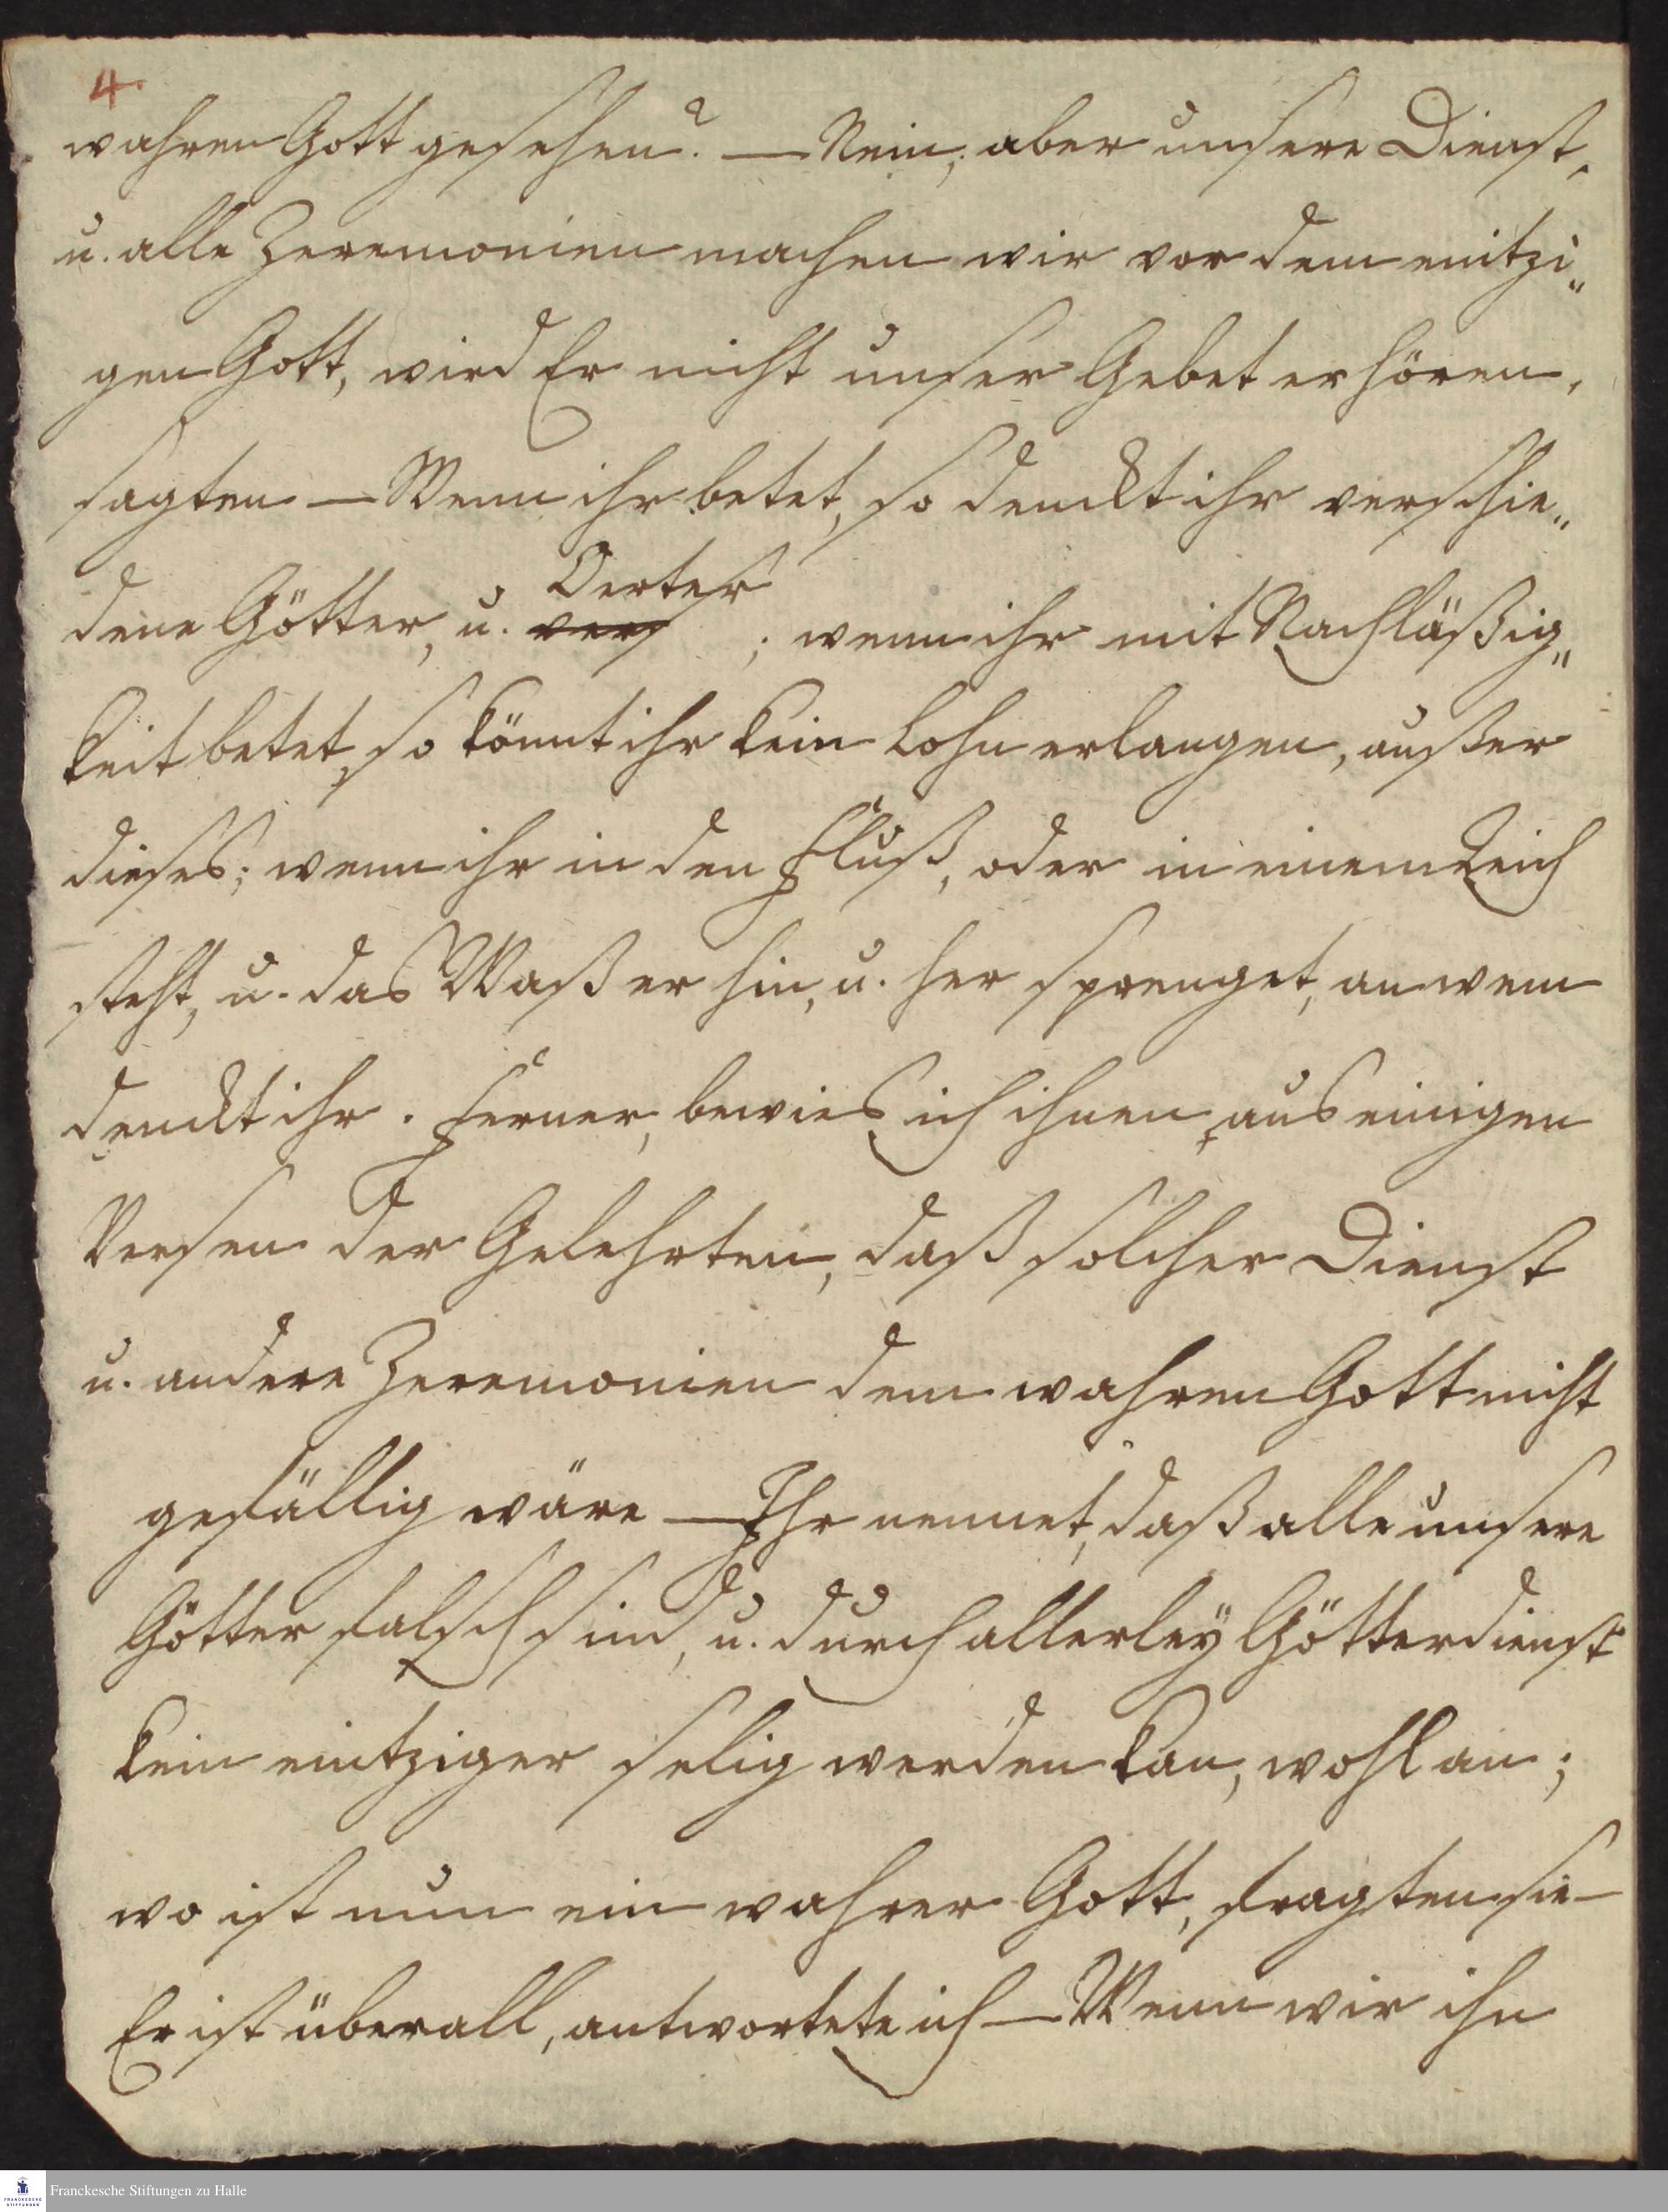 4.
wahren Gott gesehen? — Nein; aber unsere Dienst,
u. alle Zeremonien machen wir vor dem einitzi„
gen Gott, wird Er nicht unser Gebet erhören,
sagten — Wenn ihr betet, so denckt ihr verschie„
Oerter
dene Götter, u. vers ; wenn ihr mit Nachläßig„
keit betet, so könnt ihr kein Lohn erlangen, außer
dieses; wenn ihr in den Fluß, oder in einem Teich
steht, u. das Waßer hin, u. her sprenget, an wem
denckt ihr. Ferner, bewies ich ihnen, aus einigen
Versen der Gelehrten, daß solcher Dienst
u. andere Zeremonien dem wahren Gott nicht
gefällig wäre — Ihr nennet, daß alle unsere
Götter falsch sind, u. durch allerleÿ Götterdienst
kein eintziger selig werden kan, wohl an;
wo ist nun ein wahrer Gott, fragten sie —
Er ist überall, antwortete ich — Wenn wir ihn
Franckesche Stiftungen zu Halle
FRANCKESCHE
STIFTUNGEN